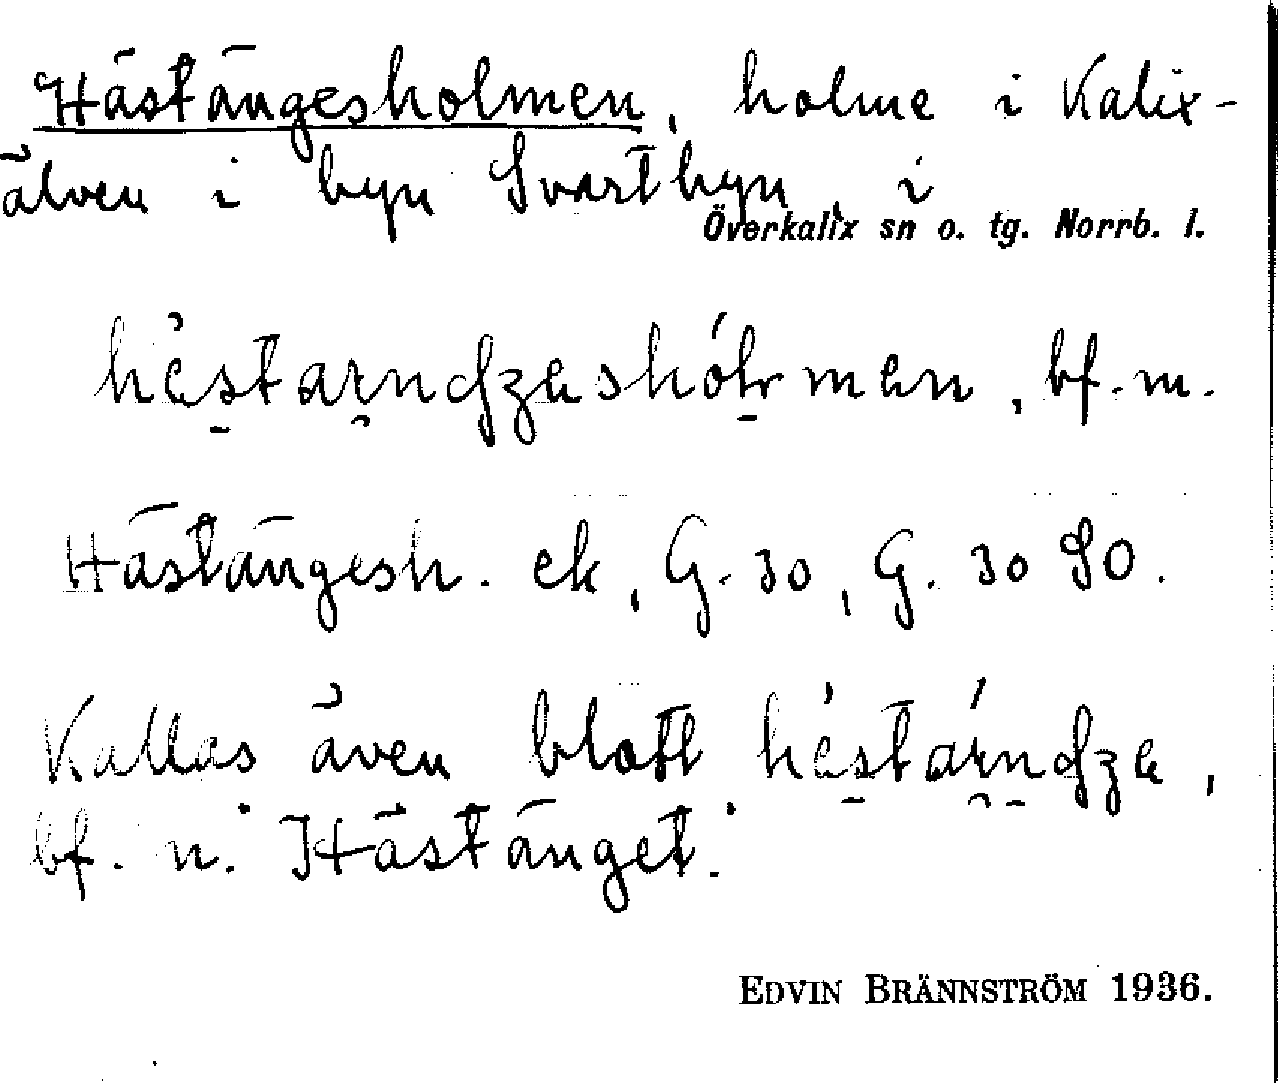 Hästängesholmen, holme i Kalix-
älven i byn Svartbyn i
Överkalix sn o. tg. Norrb. l.
hèstarndzeshólmen, bf. m.
Hästängesh. ek, G. 30, G. 30 SO.
Kallas även blott hèstárndze,
bf. n. "Hästänget".
EDVIN BRÄNNSTRÖM 1936.